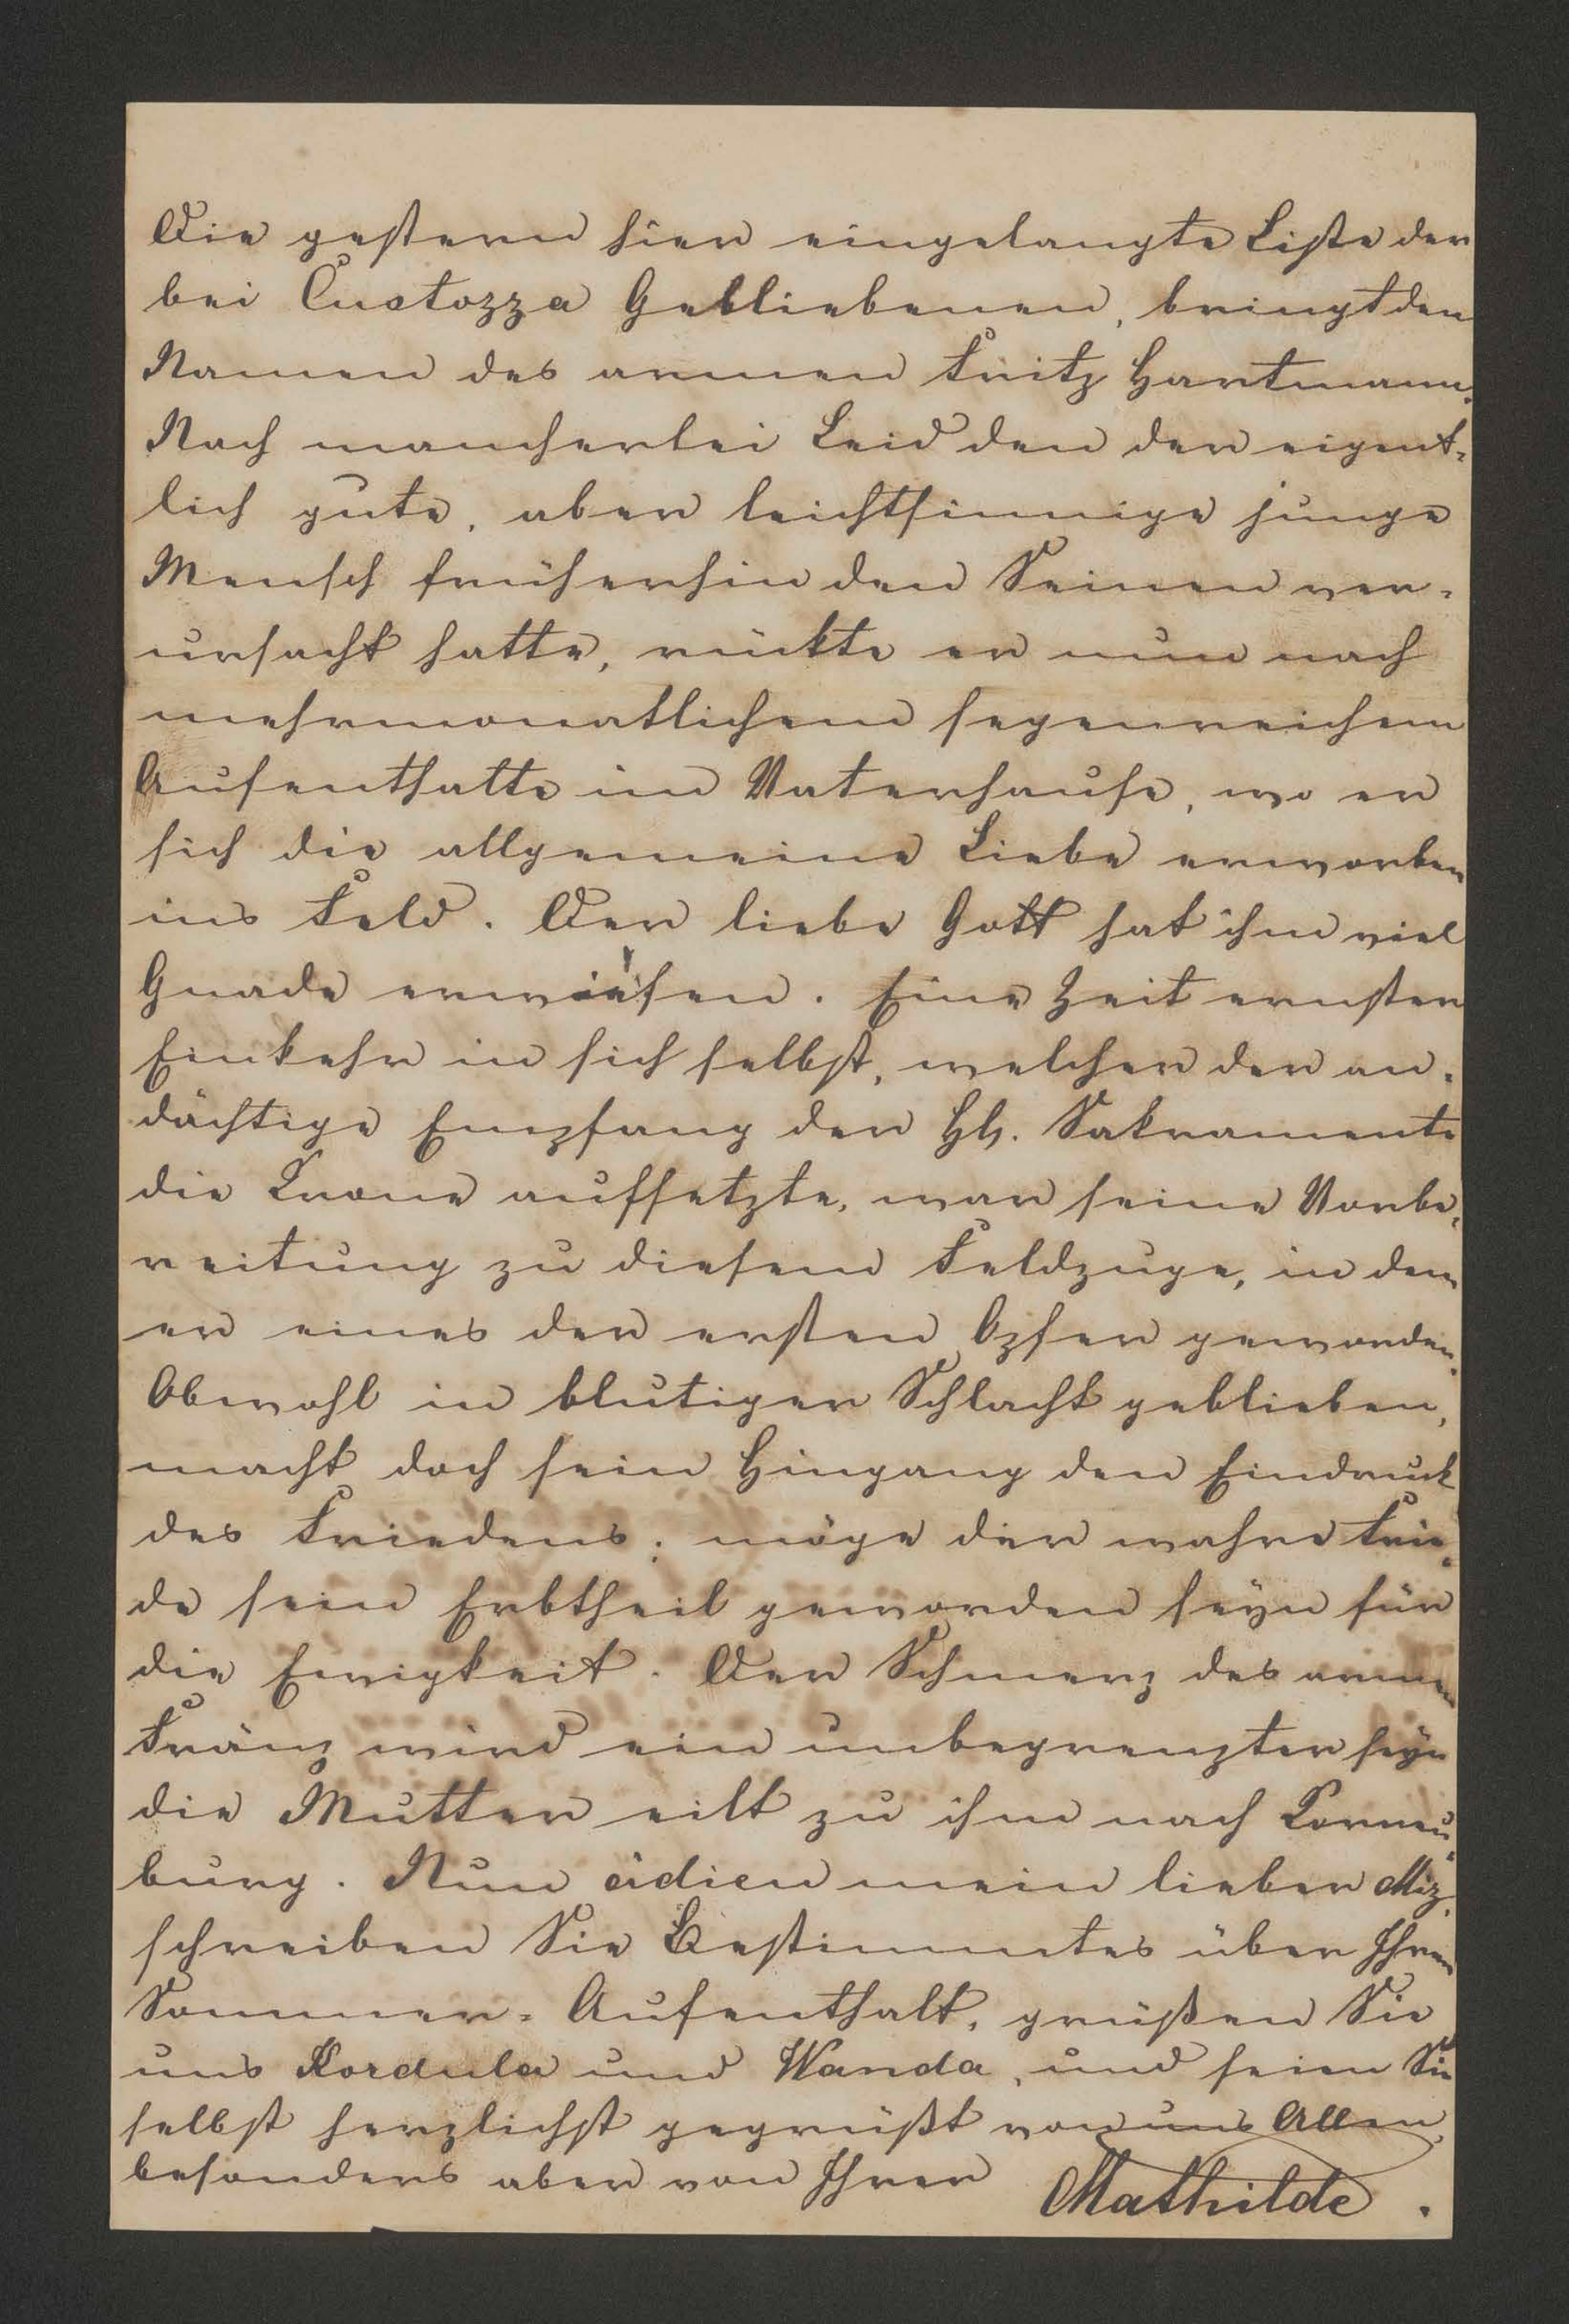 Die gestern hier eingelangte Liste der
bei Custozza Gebliebenen, bringt den
Namen des armen Fritz Hartmann.
Nach mancherlei Leid den der eigent-
lich gute, aber leichtsinnige junge
Mensch früherhin den Seinen ver-
ursacht hatte, rückte er nun nach
mehrmonatlichem segenreichem
Aufenthalte im Vaterhause, wo er
sich die allgemeine Liebe erworben
ins Feld. Der liebe Gott hat ihm viel
Gnade erwiesen. Eine Zeit ernster
Einkehr in sich selbst, welcher der an-
dächtige Empfang der Hh. Sakramente
die Krone aufsetzte, war seine Vorbe-
reitung zu diesem Feldzuge, in dem
er eines der ersten Opfer geworden.
Obwohl in blutiger Schlacht geblieben,
macht doch sein Hingang den Eindruck
des Friedens; möge der wahre Frie-
de sein Erbtheil geworden seyn für
die Ewigkeit. Der Schmerz des armen
Franz wird ein unbegrenzter seyn
die Mutter eilt zu ihm nach Korneu-
burg. Nun adieu mein lieber Miz,
schreiben Sie Bestimmtes über Ihren
Sommer-Aufenthalt, grüßen Sie
uns Kordula und Wanda, und seien Sie
selbst herzlichst gegrüßt von uns Allen,
besonders aber von Ihrer Mathilde.